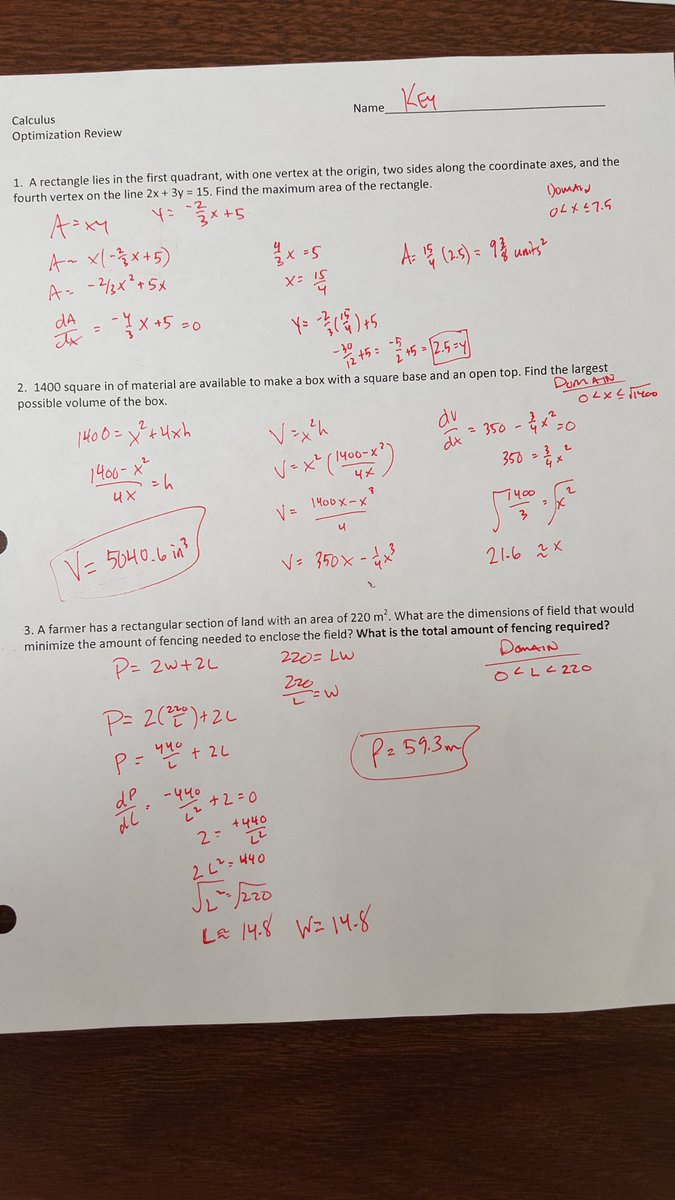 Calculus
Optimization Review
Name KEY
1. A rectangle lies in the first quadrant, with one vertex at the origin, two sides along the coordinate axes, and the
fourth vertex on the line 2x + 3y = 15. Find the maximum area of the rectangle.
A = xy
y = -2/3 x + 5
DOMAIN
0 < x ≤ 7.5
A = x(-2/3 x + 5)
A = -2/3x² + 5x
dA/dx = -4/3 x + 5 = 0
4/3 x = 5
x = 15/4
y = -2/3(15/4) + 5
-30/12 + 5 = -5/2 + 5 = 2.5 = y
A = 15/4 (2.5) = 9 3/8 units²
2. 1400 square in of material are available to make a box with a square base and an open top. Find the largest
possible volume of the box.
DOMAIN
0 < x ≤ √1400
1400 = x² + 4xh
1400 - x² / 4x = h
V = 5040.6 in³
V = x²h
V = x² (1400 - x² / 4x)
V = 1400x - x³ / 4
V = 350x - 1/4x³
dv/dx = 350 - 3/4x² = 0
350 = 3/4 x²
√1400/3 = √x²
21.6 ≈ x
3. A farmer has a rectangular section of land with an area of 220 m². What are the dimensions of field that would
minimize the amount of fencing needed to enclose the field? What is the total amount of fencing required?
P = 2W + 2L
220 = LW
220/L = W
DOMAIN
0 < L < 220
P = 2(220/L) + 2L
P = 440/L + 2L
P = 59.3m
dP/dL = -440/L² + 2 = 0
2 = +440/L²
2L² = 440
√L² = √220
L ≈ 14.8 W = 14.8